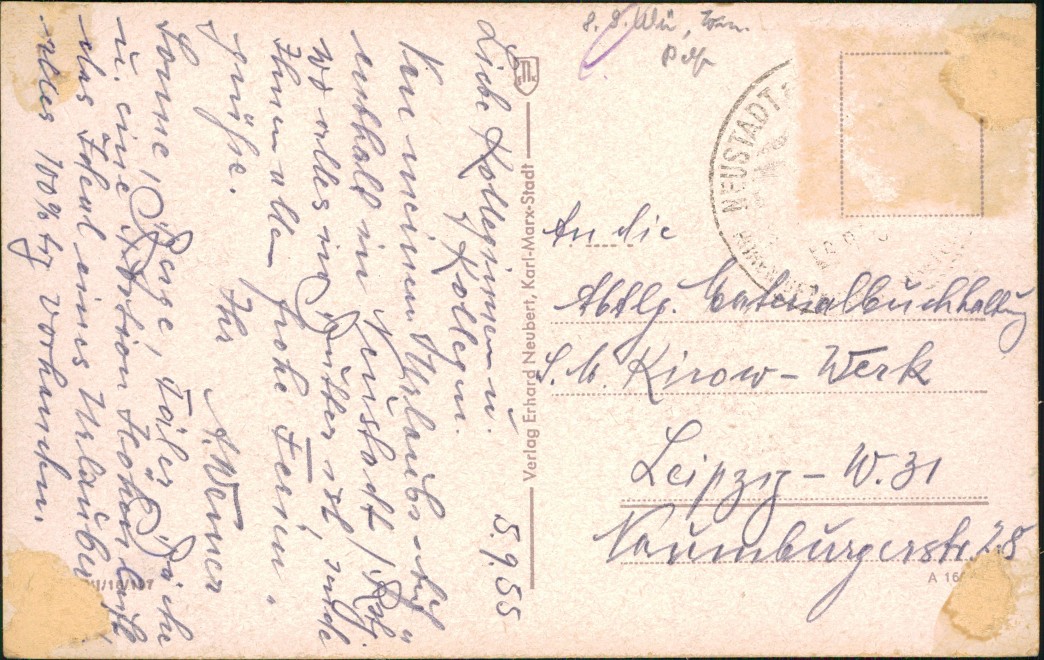 5.9.55
Liebe Kolleginnen u.
Kollegen.
Von meinem Urlaubs-auf
enthalt in Neustadt/
wo alles in Butter ist, sende
Ihnen allen frohe Ferien-
grüße.
Ihr
A. Werner
Sonne, Berge, Täler, Bäche
u. eine Portion
das Ideal eines Urlaubers
alles 100%tig vorhanden.
Verlag Erhard Neubert, Karl-Marx-Stadt
NEUSTADT
An die
Abtlg. Materialbuchhaltung
S. M. Kirow-Werk
Leipzig-W.31
Naumburgerstr. 28
A 16